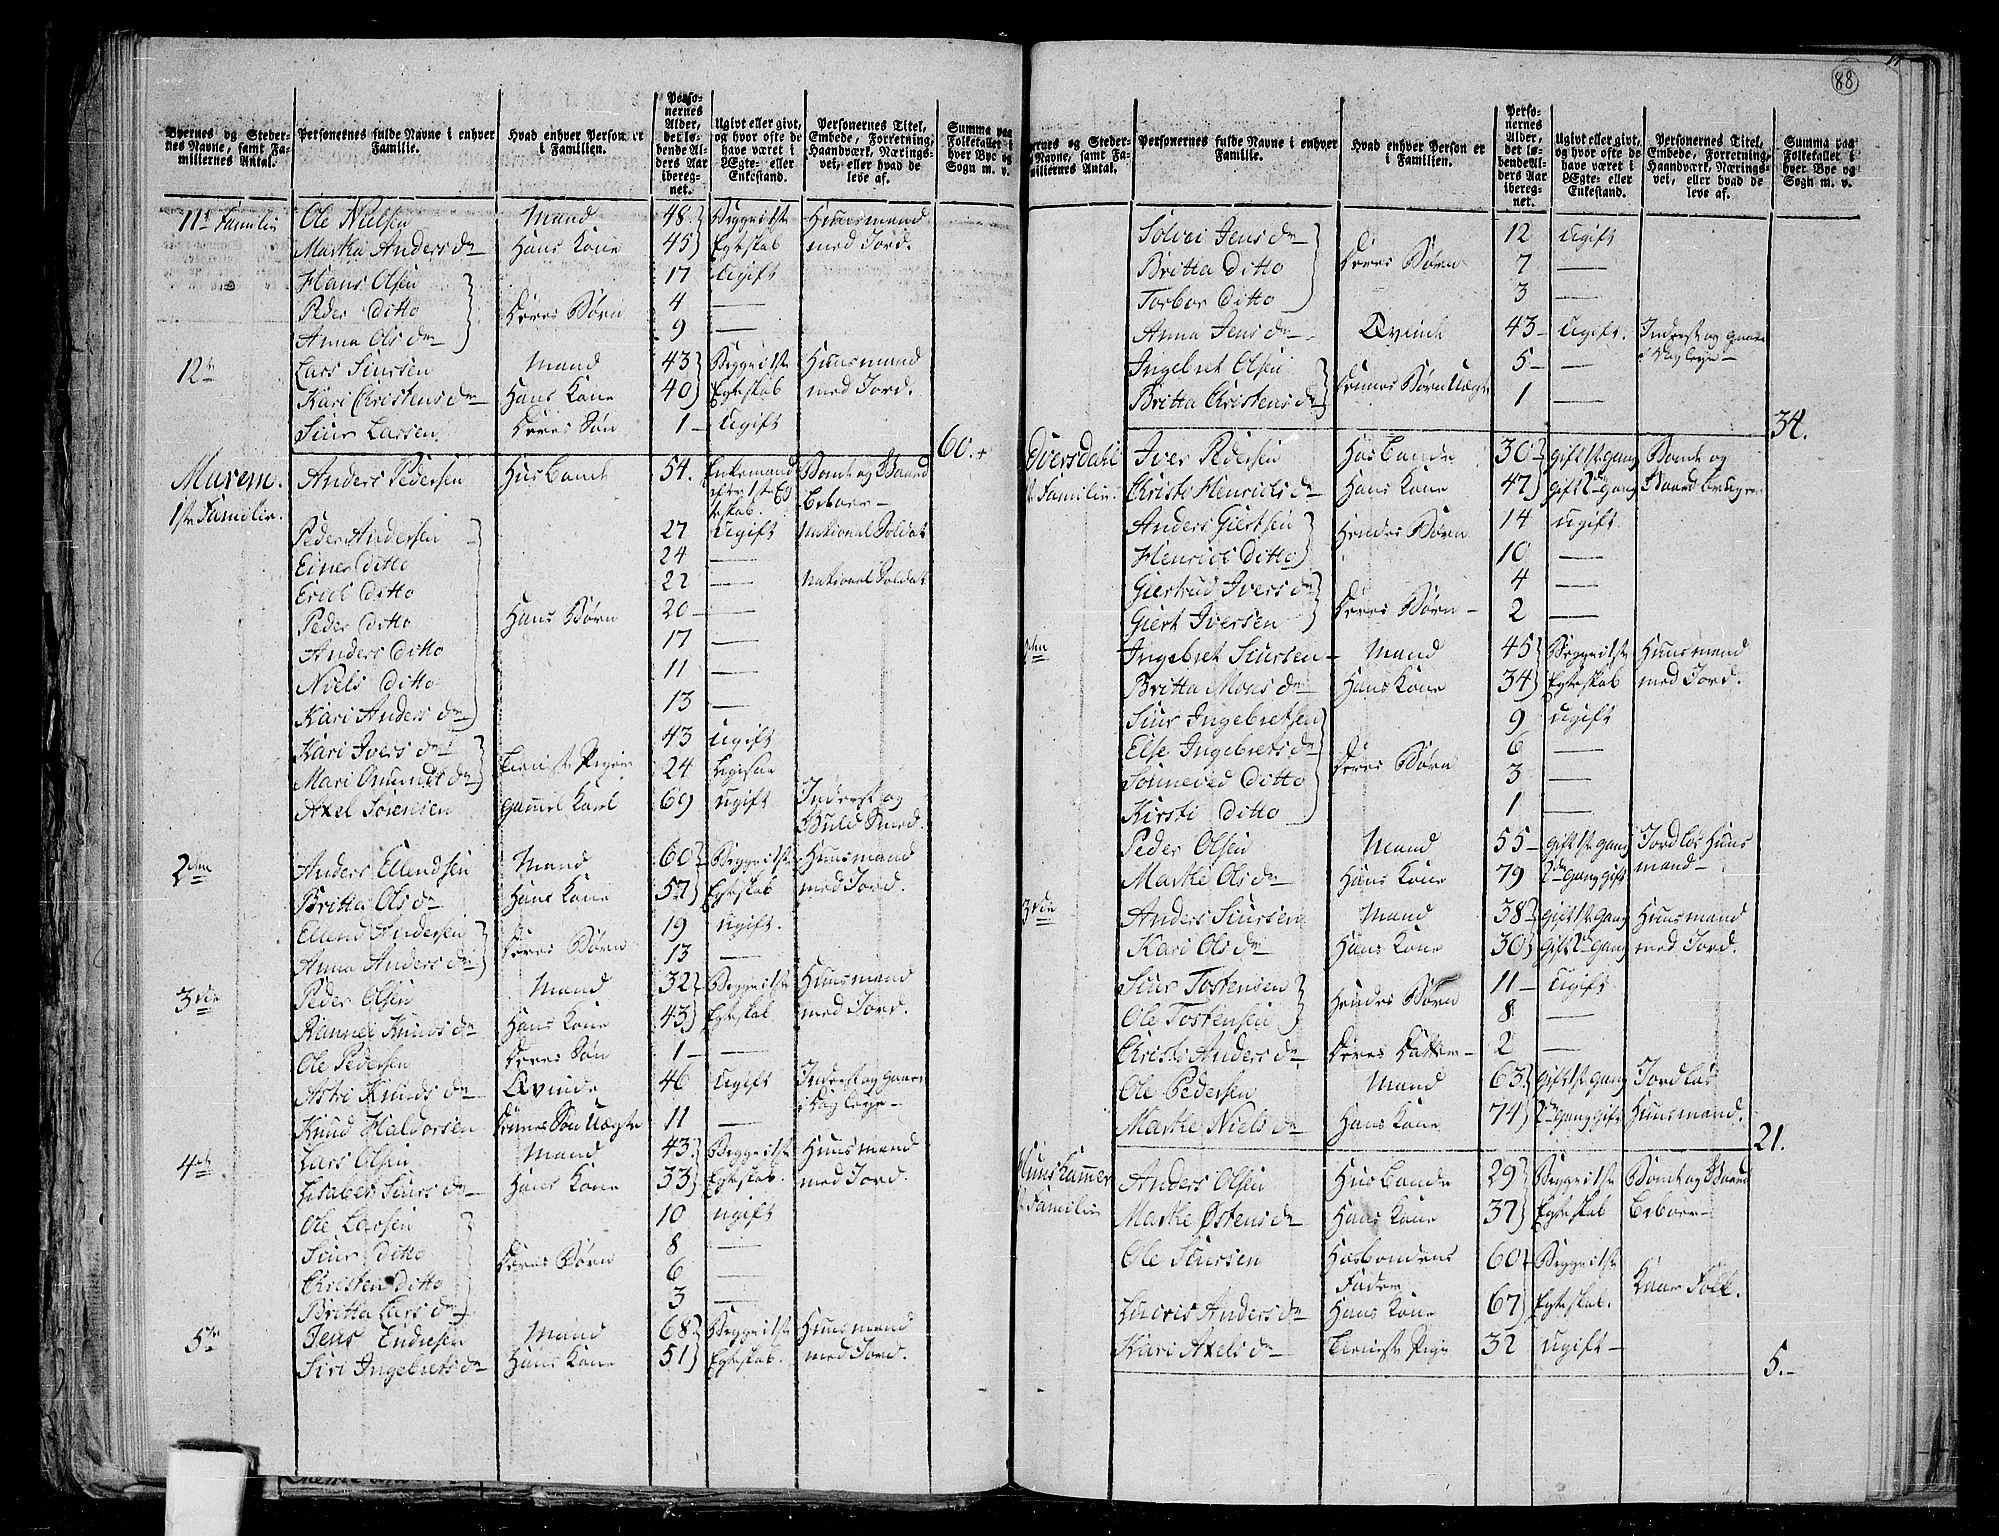 88
Byernes og Stedernes Navne, samt Familiernes Antal. | Personernes fulde Navne i enhver Familie. | Hvad enhver Person er i Familien. | Personernes Alder, det løbende Alders Aar iberegnet. | Ugivt eller givt, og hvor ofte de have været i Ægte- eller Enkestand. | Personernes Titel, Embede, Forretning, Haandværk, Næringsvei, eller hvad de leve af. | Summa paa Folketallet i hver Bye og Sogn m. v.
11te Familie | Ole Nielsen | Mand | 48 | Begge i 1ste | Huusmand
Martha Andersdr | Hans Kone | 45 | Egteskab | med Jord.
Hans Olsen | 17 | Ugift
Peder Ditto | Deres Børn | 4 | —
Anna Olsdr | 9 | —
12te | Lars Siursen | Mand | 43 | Begge i 1ste | Huusmand
Kari Christensdr | Hans Kone | 40 | Egteskab | med Jord.
Siur Larsen | Deres Søn | 1 | Ugift
60.
Murem. | Anders Pedersen | Husbonde | 54. | Enkemand | Bonde og Gaard
1ste Familie. | efter 1ste Eg
teskab. | beboer
Peder Andersen | 27 | Ugift | National Soldat
Einer Ditto | 24 | —
Erich Ditto | 22 | — | National Soldat
Peder Ditto | Hans Børn | 20 | —
Anders Ditto | 17 | —
Niels Ditto | 11 | —
Kari Andersdr | 13 | —
Kari Iversdr | 43 | Ugift
Mari Omundsdr | Tieneste Piger | 24 | Ligesaa
Axel Sørensen | Gammel Karl | 69 | Ugift | Inderst og
Guld Smed.
2den | Anders Ellendsen | Mand | 60 | Begge i 1ste | Huusmand
Britta Olsdr | Hans Kone | 57 | Egteskab | med Jord.
Ellend Andersen | 19 | Ugift.
Anna Andersdr | Deres Børn | 13 | —
3die | Peder Olsen | Mand | 32 | Begge i 1ste | Huusmand
Rannei Knudsdr | Hans Kone | 43 | Egteskab | med Jord.
Ole Pedersen | Deres Søn | 1 | —
Astri Knudsdr | Qvinde | 46 | Ugift | Inderst og gaaer
Knud Haldorsen | Dennes Søn Uægte | 11 | — | i Dagleje
4de | Lars Olsen | Mand | 43 | Begge i 1ste | Huusmand
Lisabet Siursdr | Hans Kone | 33 | Egteskab. | med Jord.
Ole Larsen | 10 | ugift
Siur Ditto | 8 | —
Christen Ditto | Deres Børn | 6 | —
Britta Larsdr | 3 | —
5te | Jens Endresen | Mand | 68 | Begge i 1ste | Huusmand
Siri Ingebretsdr | Hans Kone | 51 | Egteskab. | med Jord.
Byernes og Stedernes Navne, samt Familiernes Antal. | Personernes fulde Navne i enhver Familie. | Hvad enhver Person er i Familien. | Personernes Alder, det løbende Alders Aar iberegnet. | Ugivt eller givt, og hvor ofte de have været i Ægte- eller Enkestand. | Personernes Titel, Embede, Forretning, Haandværk, Næringsvei, eller hvad de leve af. | Summa paa Folketallet i hver Bye og Sogn m. v.
Solvei Jensdr | 12 | Ugift
Britta Ditto | Deres Børn | 7 | —
Torbor Ditto | 3 | —
Anna Jensdr | Qvinde | 43 | Ugift. | Inderst og gaaer
Ingebret Olsen | 5 | — | i Dagleje
Britta Christensdr | Dennes Børn Uægte | 1 | —
34.
Iversdahl | Iver Pedersen | Husbonde | 30 | Gift 1ste Gang | Bonde og
1ste Familie. | Christi Henrichsdr | Hans Kone | 47 | Gift 2den Gang | Gaards Bruger
Anders Giertsen | 14 | Ugift
Henrich Ditto | Hendes Børn | 10 | —
Giertrud Iversdr | 4 | —
Giert Iversen | Deres Børn | 2 | —
2den | Ingebret Siursen | Mand | 45 | Begge i 1ste | Huusmand
Britta Monsdr | Hans Kone | 34 | Egteskab | med Jord.
Siur Ingebretsen | 9 | Ugift
Else Ingebretsdr | 6 | —
Sønneved Ditto | Deres Børn | 3 | —
Kirsti Ditto | 1 | —
Peder Olsen | Mand | 55 | Gift 1ste Gang | Jordløs Huus
Marthe Olsdr | Hans Kone | 79 | 2den Gang gift | mand
3die | Anders Siursen | Mand | 38 | Gift 1ste Gang | Huusmand
Kari Olsdr | Hans Kone | 30 | Gift 2den Gang | med Jord.
Siur Tostensen | 11 | Ugift
Ole Tostensen | Hendes Børn | 8 | —
Christi Andersdr | Deres Datter | 2 | —
Ole Pedersen | Mand | 63 | Gift 1ste Gang | Jordløs
Marthe Nielsdr | Hans Kone | 74 | 2den Gang gift | Huusmand.
21.
Huuskammer | Anders Olsen | Husbonde | 29 | Begge i 1ste | Bonde og Gaard
1ste Familie | Marthe Østensdr | Hans Kone | 37 | Egteskab | beboer
Ole Siursen | Husbondens Fader | 60 | Begge i 1ste | Kaar Folk.
Andersdr | Hans Kone | 67 | Egteskab.
Kari Axelsdr | Tieneste Pige | 32 | ugift
5.